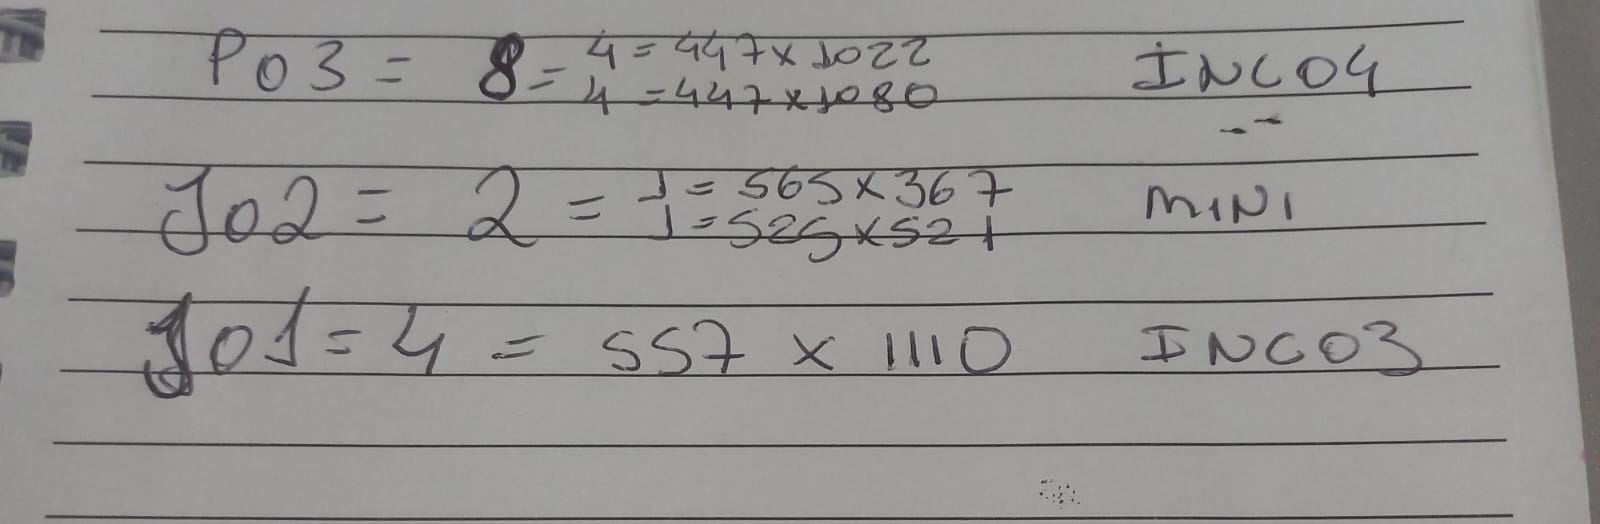 P03 = 8 = 4 = 447 x 1022 INC04
4 = 447 x 1080
J02 = 2 = 1 = 565 x 367 MINI
1 = 525 x 521
J01 = 4 = 557 x 1110 INC03